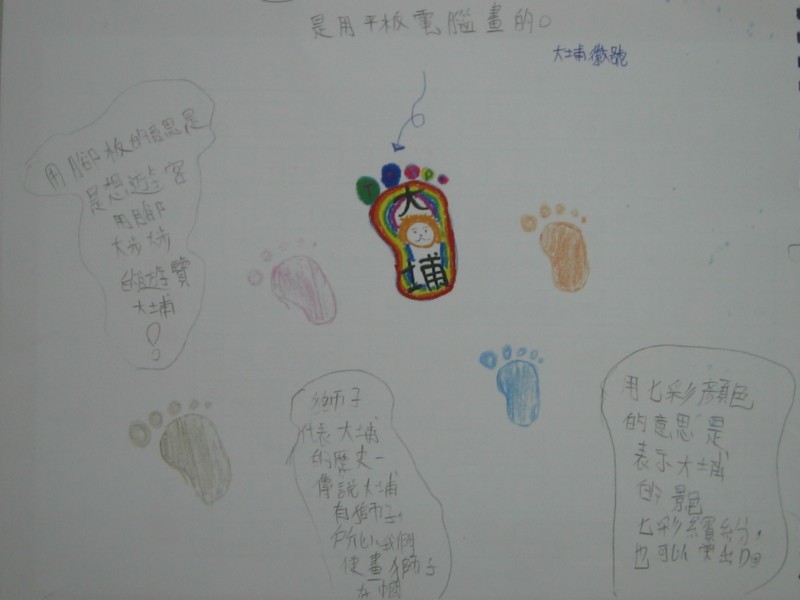 是用平板電腦畫的。
大埔徽號
用腳板的意思是
是想遊客
用腳
大步大步
的遊覽
大埔
!
大
埔
獅子
代表大埔
的歷史-
傳說大埔
有獅子,
所以我們
便畫獅子
用七彩顏色
的意思是
表示大埔
的景色
七彩繽紛,
也可以突出D。